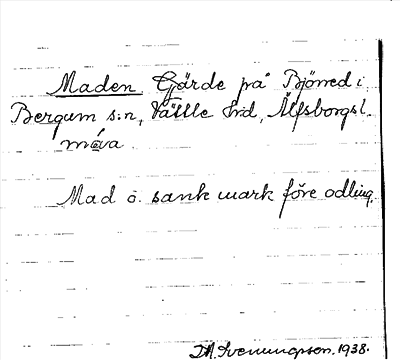 Maden Gärde på Björred i
Bergum s:n, Vättle hd, Älfsborgs l.
måva
Mad o. sank mark före odling.
M. Svenungsson. 1938.